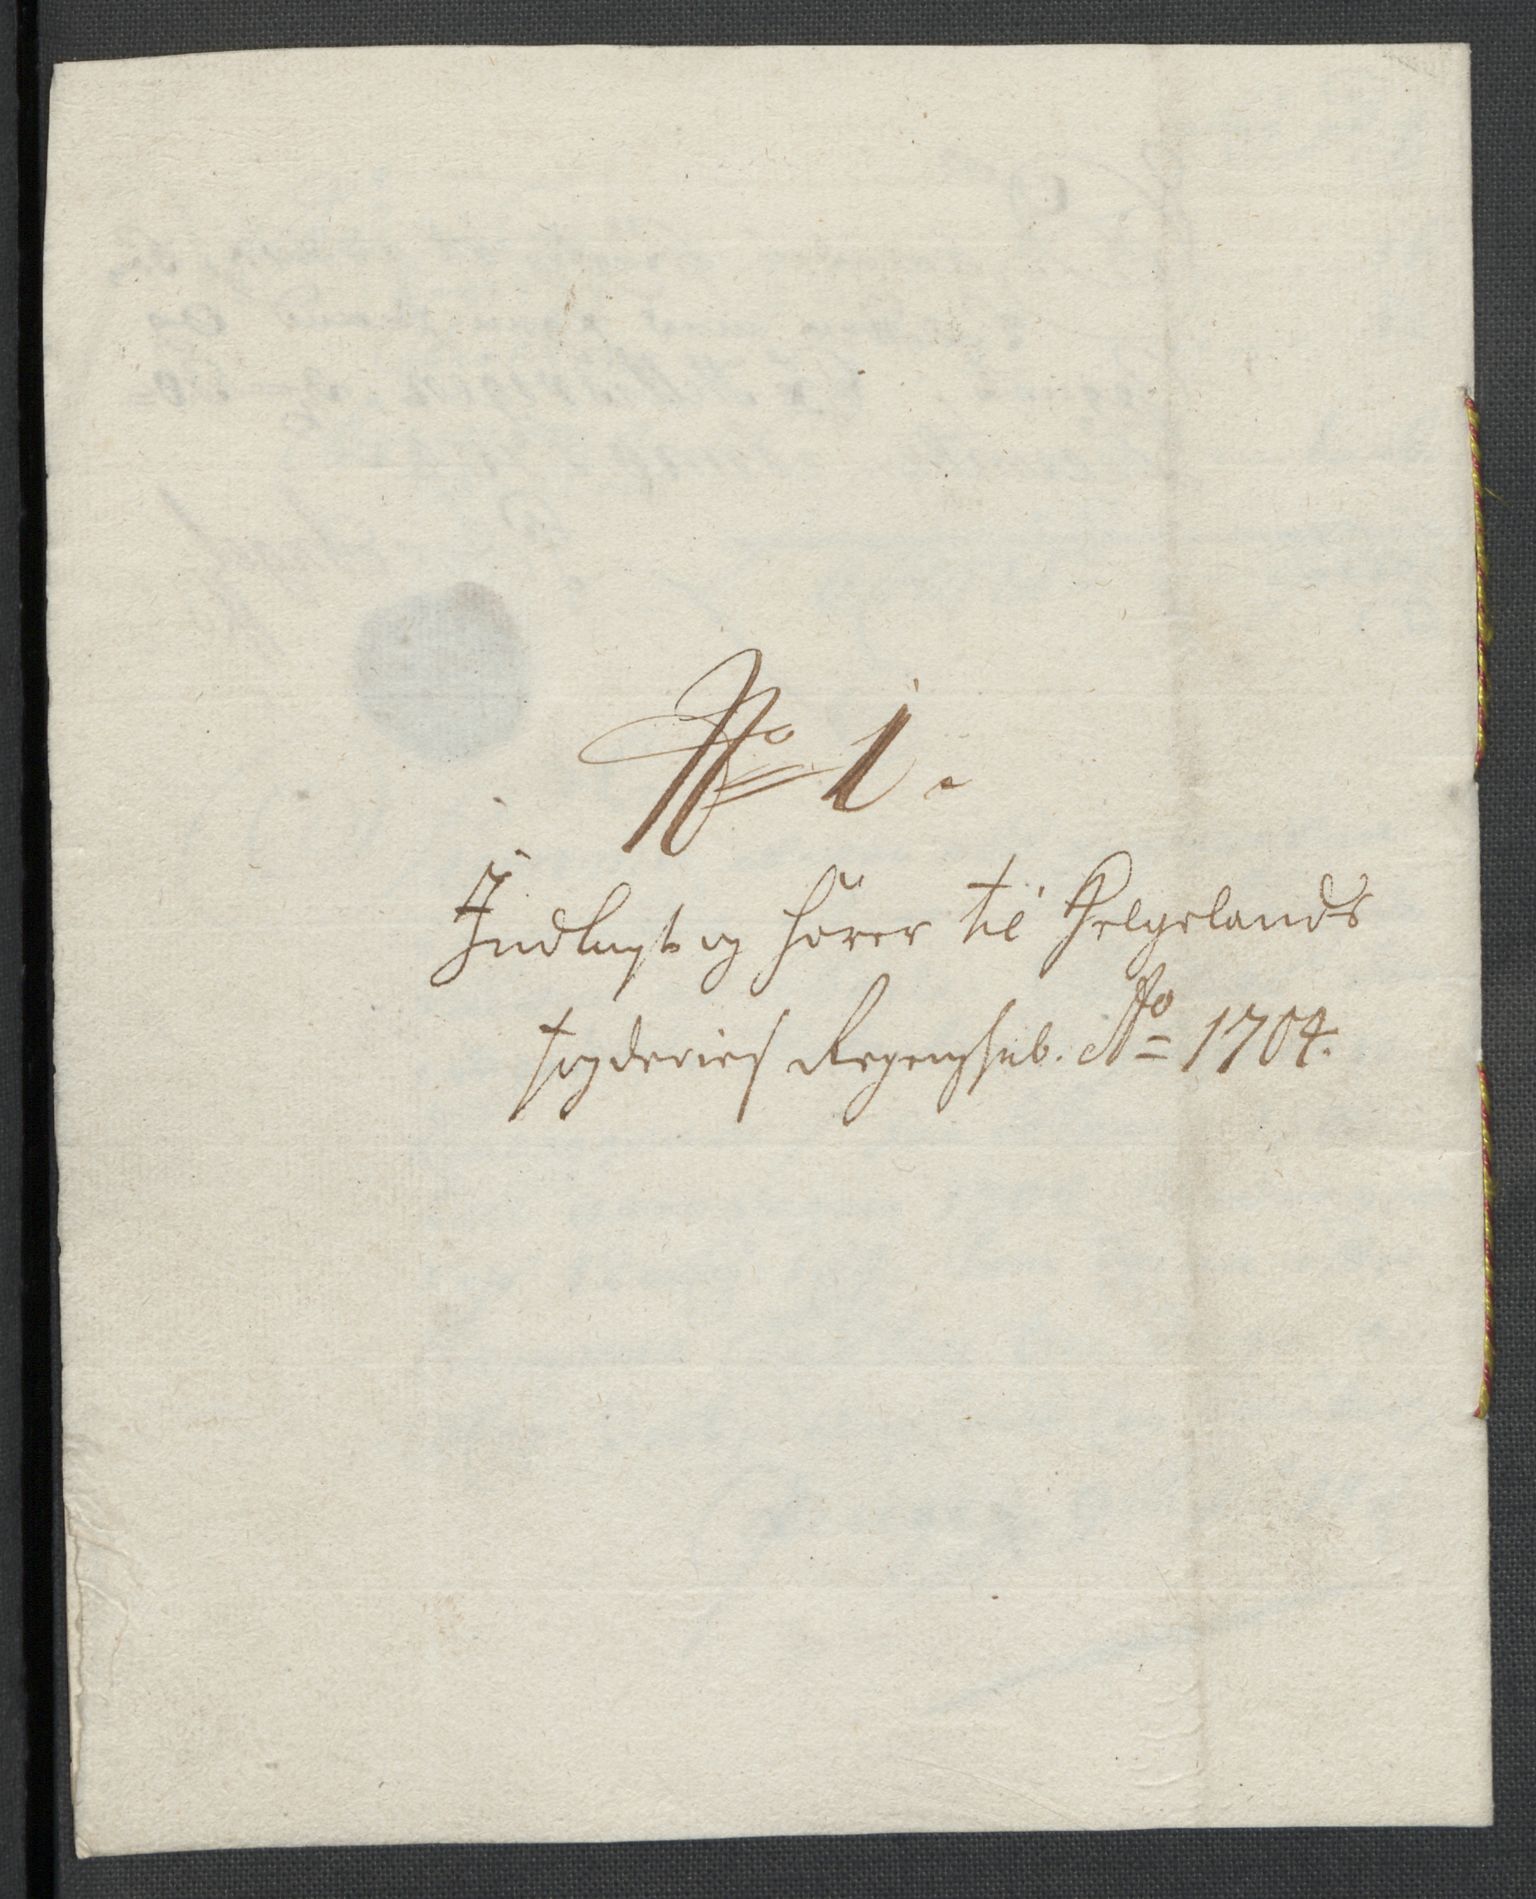 No 1.
Indlagt og hörer til Helgelands
fogderies Regenskab. Ao 1704.